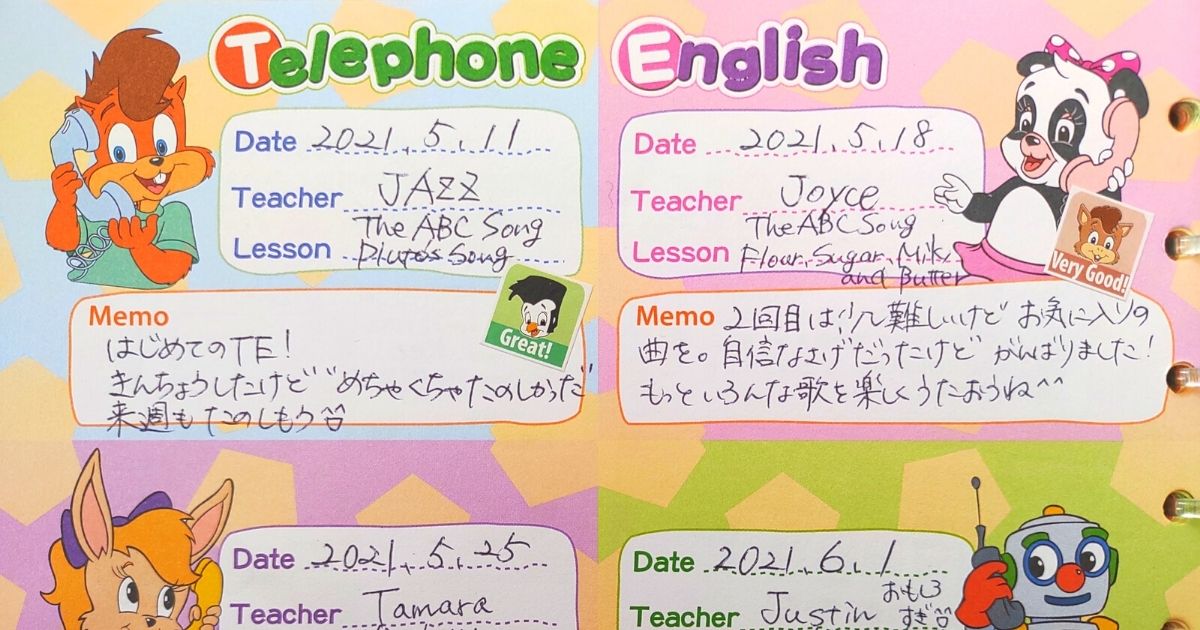 Telephone
Date 2021.5.11
Teacher JAZZ
The ABC Song
Lesson Pluto's Song
Great!
Memo
はじめてのTE!
きんちょうしたけど"めちゃくちゃたのしかった"
来週もたのしもう
English
Date 2021.5.18
Teacher Joyce
The ABC Song
Lesson Flour, Sugar, Milk,
and Butter
Very Good!
Memo 2回目は少し難しいけどお気に入りの
曲を。自信なさげだったけどがんばりました!
もっといろんな歌を楽しくうたおうね^^
Date 2021.5.25
Teacher Tamara
Date 2021.6.1
Teacher Justin おもしろ
すぎ